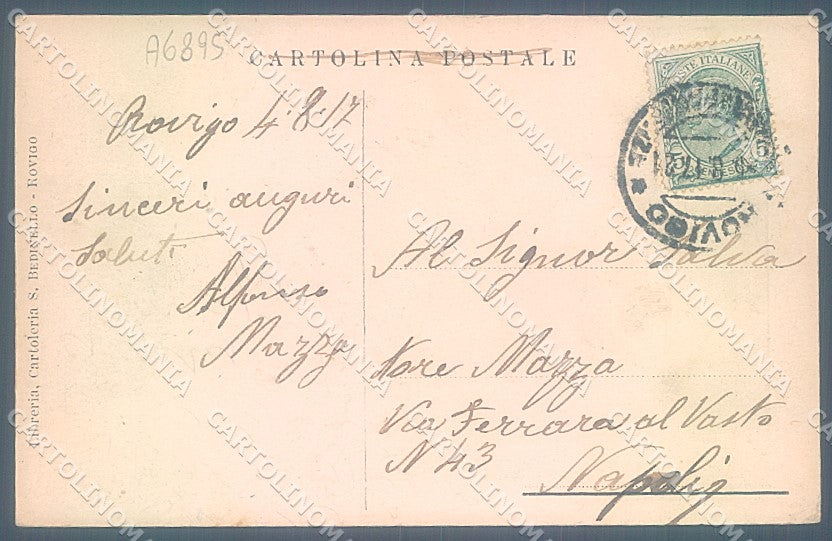 A6895
CARTOLINA POSTALE
Rovigo 4.8.17
Sinceri auguri
Saluti
Alfonso
Mazza
Al Signor Salva
tore Mazza
Via Ferrara al Vasto
N 43
Napoli
Libreria, Cartoleria S. BEDINELLO - ROVIGO
POSTE ITALIANE
5
ROVIGO
CARTOLINOMANIA